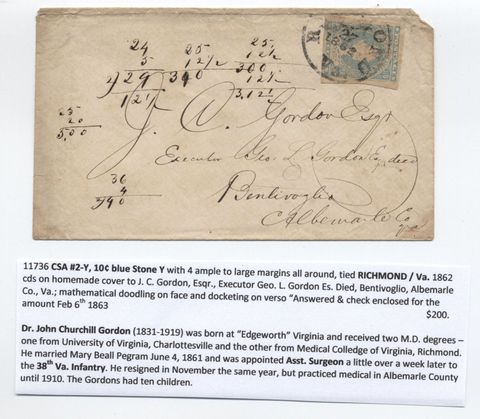 24
5
29
12½
25
12½
340
25
12½
300
12½
3,12½
25
20
5,00
36
4
40
J. C. Gordon Esqr
Executor Geo. L. Gordon Es, deced
Bentivoglio
Albemarle Co
Va
11736 CSA #2-Y, 10¢ blue Stone Y with 4 ample to large margins all around, tied RICHMOND / Va. 1862
cds on homemade cover to J. C. Gordon, Esqr., Executor Geo. L. Gordon Es. Died, Bentivoglio, Albemarle
Co., Va.; mathematical doodling on face and docketing on verso "Answered & check enclosed for the
amount Feb 6th 1863 $200.
Dr. John Churchill Gordon (1831-1919) was born at "Edgeworth" Virginia and received two M.D. degrees –
one from University of Virginia, Charlottesville and the other from Medical Colledge of Virginia, Richmond.
He married Mary Beall Pegram June 4, 1861 and was appointed Asst. Surgeon a little over a week later to
the 38th Va. Infantry. He resigned in November the same year, but practiced medical in Albemarle County
until 1910. The Gordons had ten children.